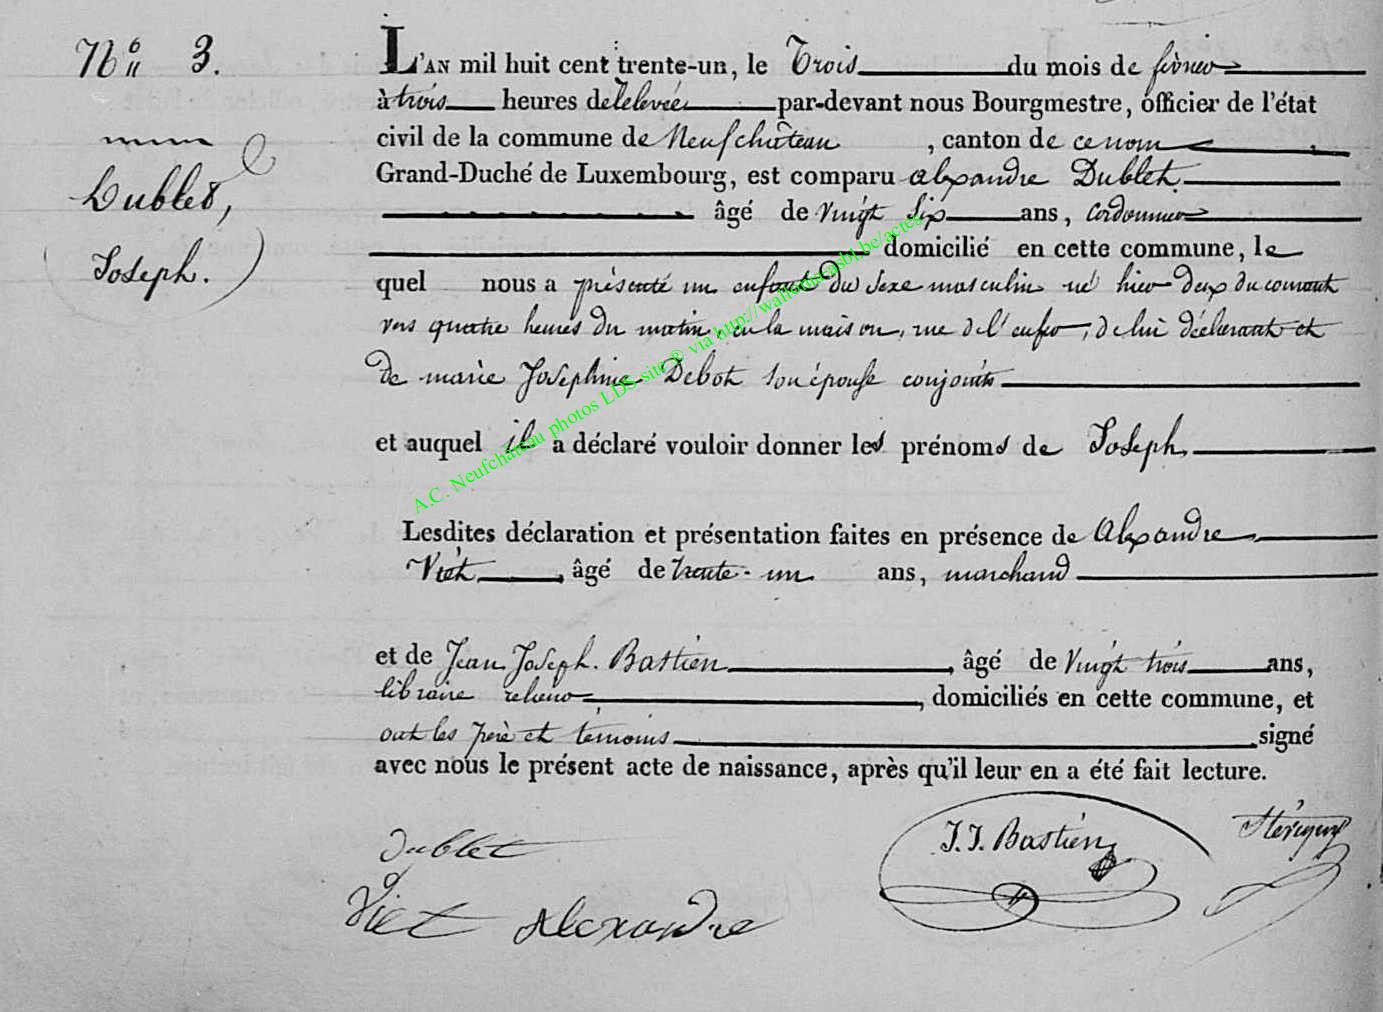 N° 3.
Dublet,
Joseph.
L'AN mil huit cent trente-un, le Trois du mois de février
à trois heures de Relevée par-devant nous Bourgmestre, officier de l'état
civil de la commune de Neufchâteau, canton de ce nom
Grand-Duché de Luxembourg, est comparu alexandre Dublet.
âgé de vingt six ans, cordonnier
domicilié en cette commune, le
quel nous a présenté un enfant du sexe masculin né hier deux du courant
vers quatre heures du matin, en la maison, rue de l'enfer, de lui déclarant et
de marie Josephine Debot son épouse conjoints
et auquel il a déclaré vouloir donner les prénoms de Joseph,
Lesdites déclaration et présentation faites en présence de Alexandre
Viet, âgé de trente-un ans, marchand
et de Jean Joseph. Bastien, âgé de vingt trois ans,
libraire relieur, domiciliés en cette commune, et
ont les père et témoins signé
avec nous le présent acte de naissance, après qu'il leur en a été fait lecture.
Dublet
J. J. Bastien
Viet Alexandre
A.C. Neufchateau photos LDS-site @ via http://wallonica.asbl.be/actes